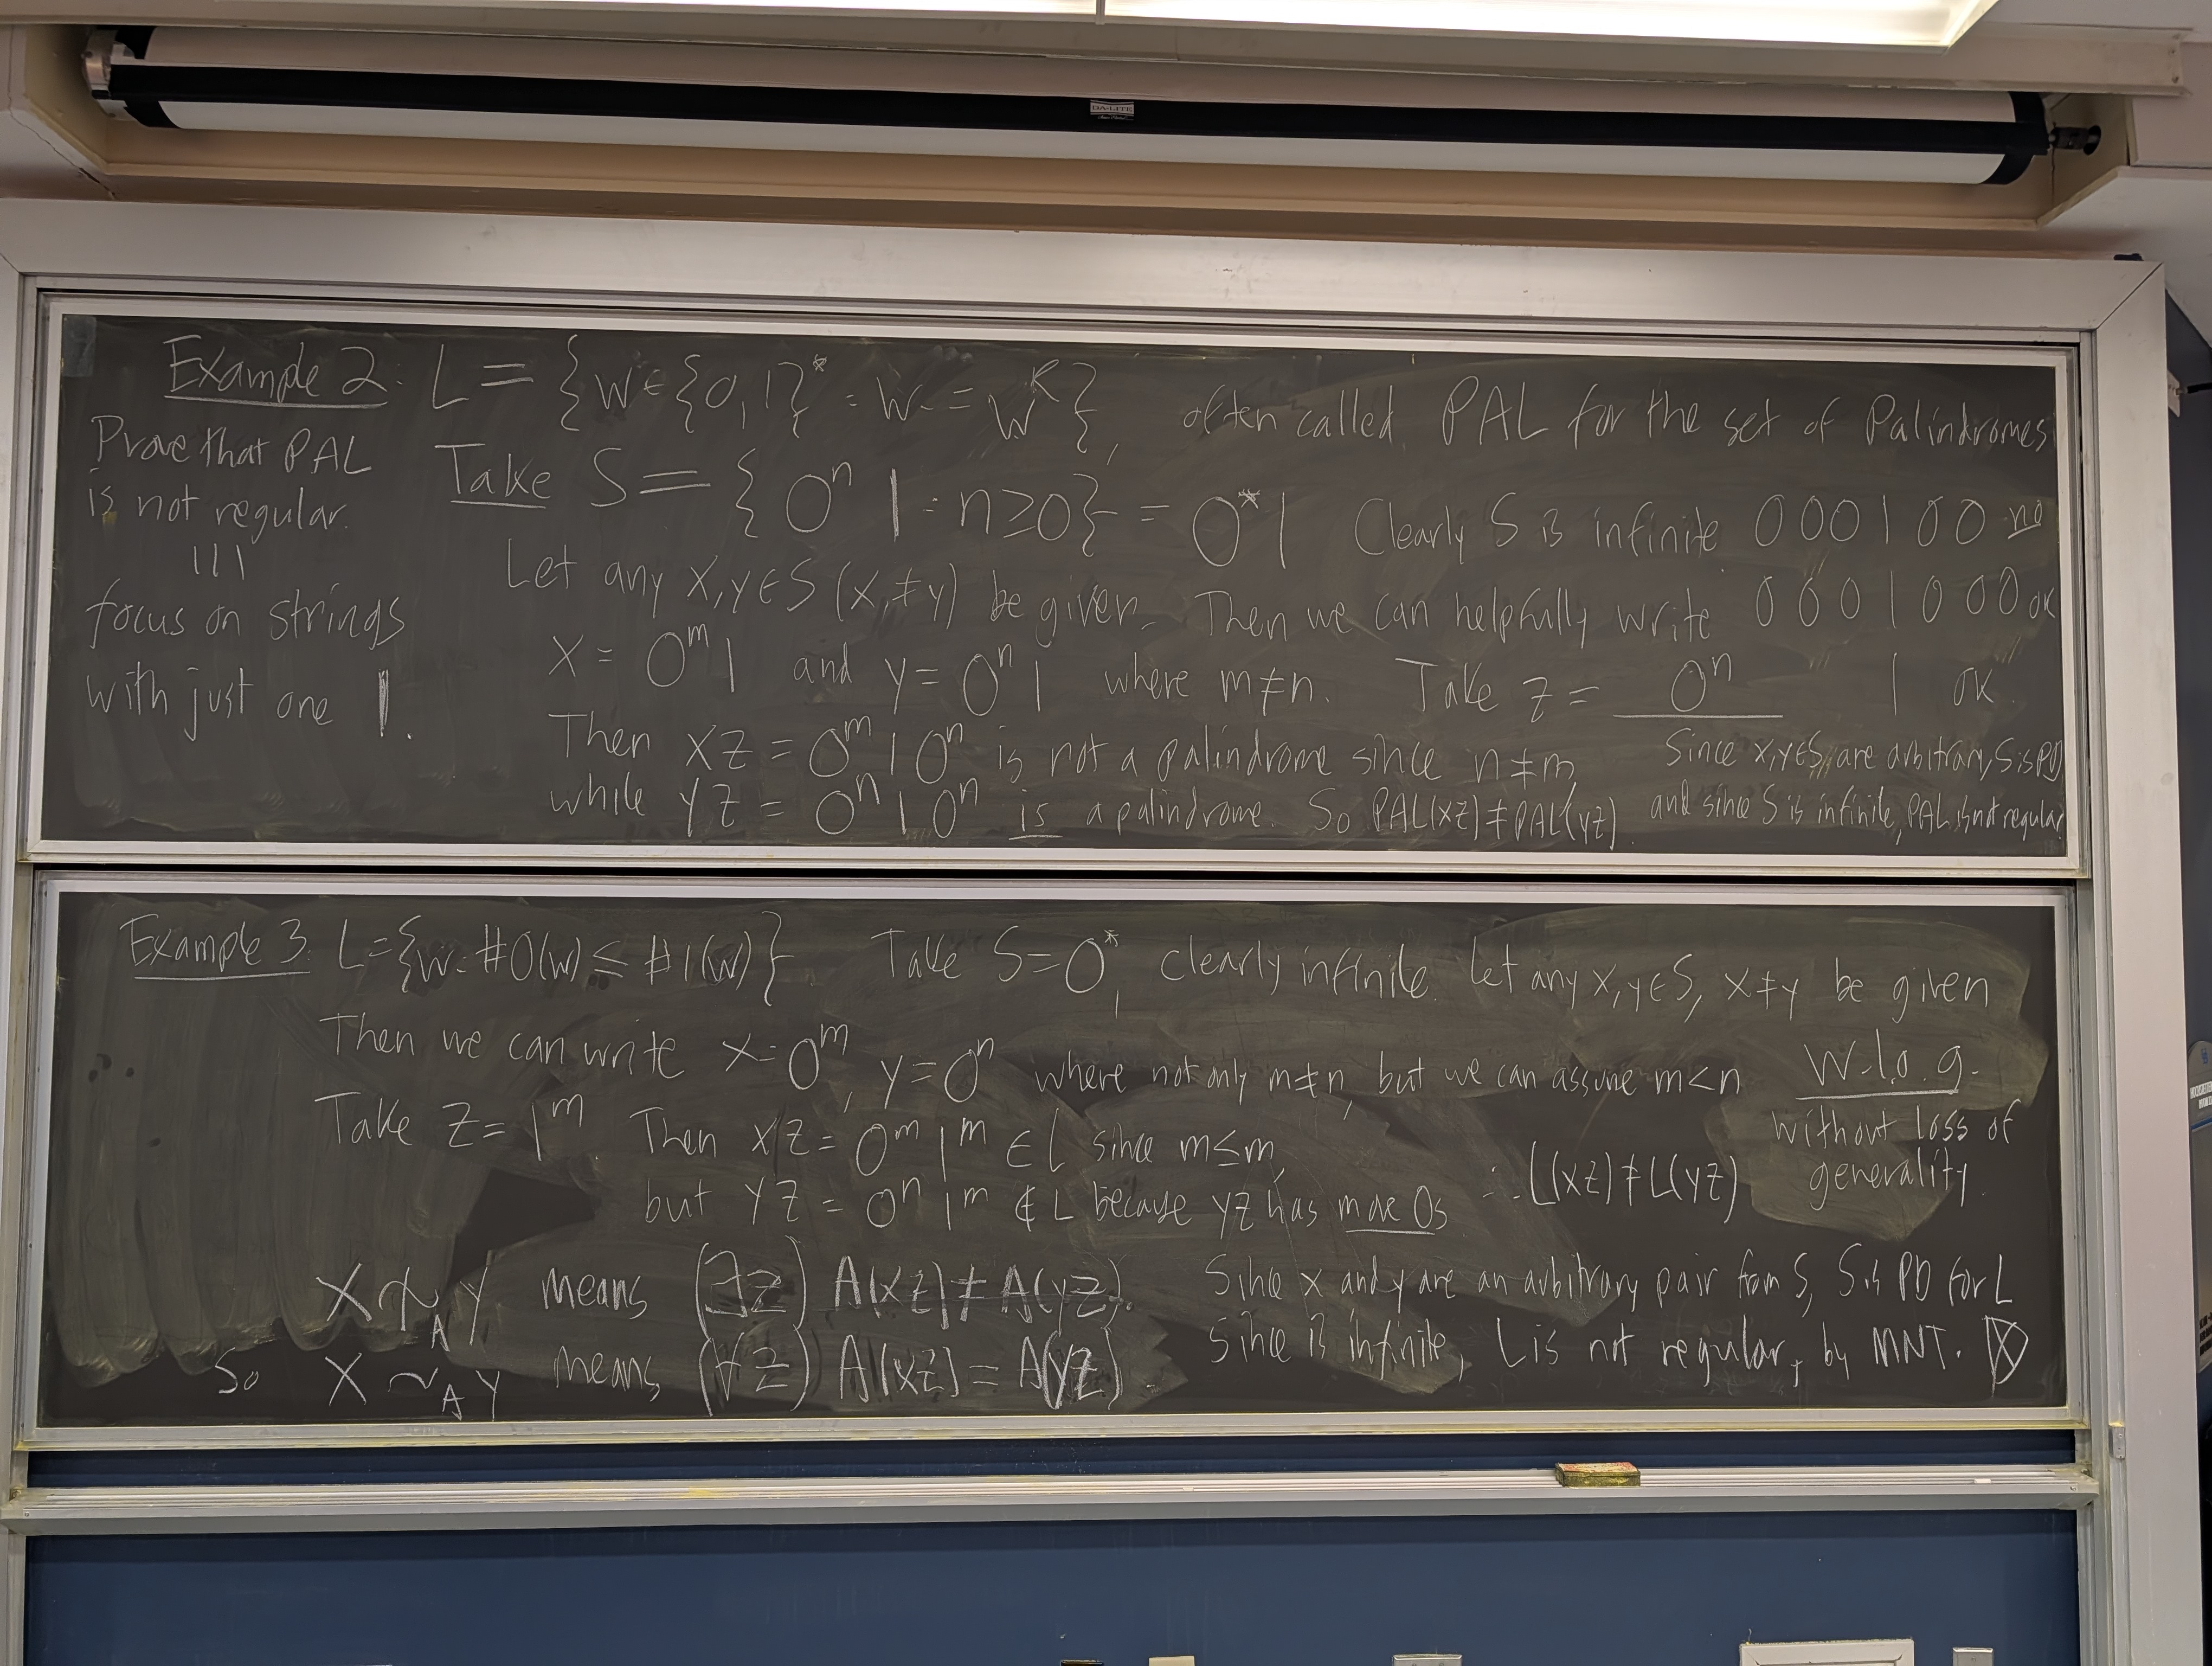 DA-LITE
Example 2: L = {w ∈ {0,1}* : w = w^R}, often called PAL for the set of Palindromes
Prove that PAL is not regular.
111
focus on strings with just one 1.
Take S = {0^n 1 : n ≥ 0} = 0*1 Clearly S is infinite. 000100 no
Let any x,y ∈ S (x ≠ y) be given. Then we can helpfully write 0001000 ok
x = 0^m 1 and y = 0^n 1 where m ≠ n. Take z = 0^n 1 ok.
Then xz = 0^m 1 0^n is not a palindrome since n ≠ m,
while yz = 0^n 1 0^n is a palindrome. So PAL(xz) ≠ PAL(yz).
Since x,y ∈ S, are arbitrary, S is PD
and since S is infinite, PAL is not regular
Example 3: L = {w : #0(w) ≤ #1(w)} Take S = 0*, clearly infinite. Let any x, y ∈ S, x ≠ y be given
Then we can write x = 0^m, y = 0^n where not only m ≠ n, but we can assume m < n w.l.o.g.
without loss of generality.
Take z = 1^m Then xz = 0^m 1^m ∈ L since m ≤ m,
but yz = 0^n 1^m ∉ L because yz has more 0s ∴ L(xz) ≠ L(yz)
x ≁_A y means (∃z) A(xz) ≠ A(yz).
So x ~_A y means (∀z) A(xz) = A(yz).
Since x and y are an arbitrary pair from S, S is PD for L
Since is infinite, L is not regular, by MNT.